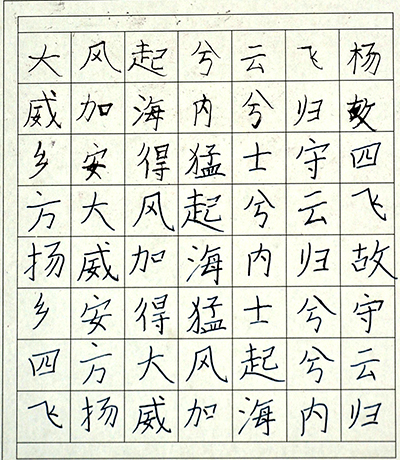 大风起兮云飞杨
威加海内兮归故
乡安得猛士守四
方大风起兮云飞
扬威加海内归故
乡安得猛士兮守
四方大风起兮云
飞扬威加海内归